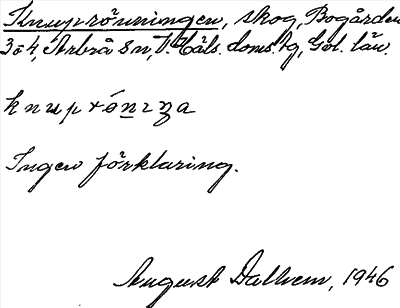 Knuprönningen, skog, Bogården
3 o 4, Arbrå sn, V. Häls. doms. hg, Gvl. län.
knuprónıŋa
Ingen förklaring.
August Dalhem, 1946